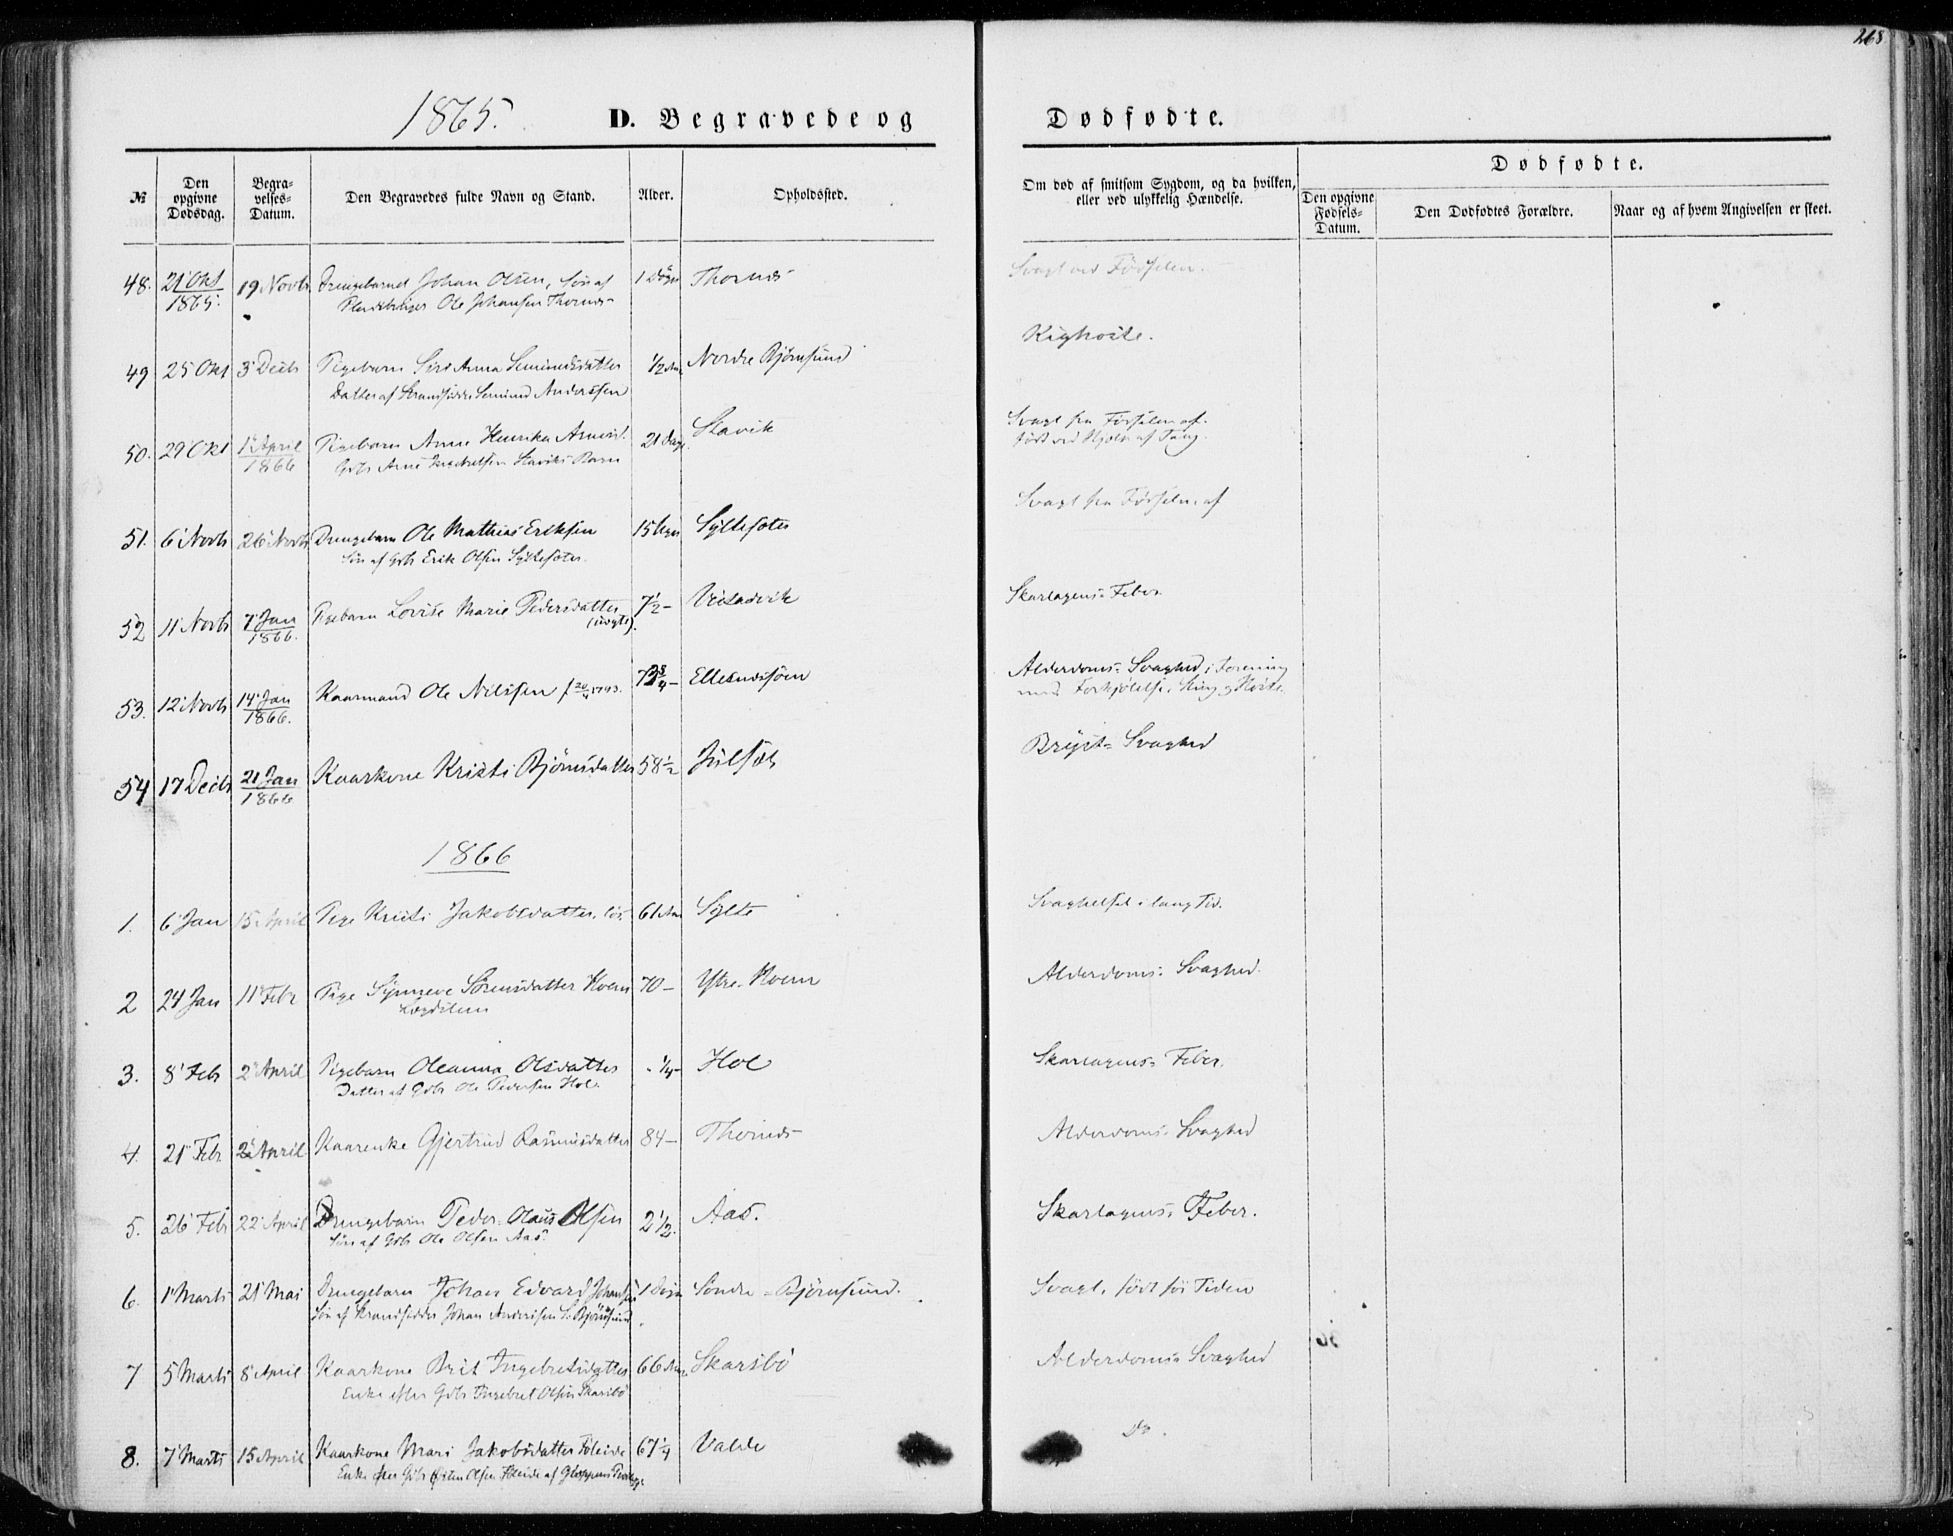 268
1865.
D. Begravede og Dødfødte.
№
Den opgivne Dødsdag.
Begravelses-Datum.
Den Begravedes fulde Navn og Stand.
Alder.
Opholdssted.
Om død af smitsom Sygdom, og da hvilken, eller ved ulykkelig Hændelse.
Dødfødte.
Den opgivne Fødsels-Datum.
Den Dødfødtes Forældre.
Naar og af hvem Angivelsen er skeet.
48. 21 Okt 1865. 19 Novb Drengebarnet Johan Olsen, Søn af 1 Døgn Thornes Svagt ved Fødselen.
Ole Johansen Thornes
49 25 Okt 3 Decb Pigebarn Siri Anna 1/2 Aar Nordre Bjørnsund Kighoste.
Datter af Strandsidder Andersen
50. 29 Okt 1 April 1866 Pigebarn Anne Henrika 21 Dage Slavik Svagt fra Fødselen af.
Gbr Arne Slaviks Barn født ved Hjælp af Tang.
51. 6 Novb 26 Novb Drengebarn Ole Mathias Eriksen 15 Uger Syltesæter Svagt fra Fødselen af
Søn af Gbr Erik Olsen Syltesæter.
52 11 Novb 7 Jan 1866. Pigebarn Lovise Marie Pedersdatter 7 1/2 – Skarlagens-Feber
(uægte).
53. 12 Novb 14 Jan 1866. Kaarmand Ole Nilsen 1793. Alderdoms-Svaghed i Forening
med Forkjølelse, Hoste.
54 17 Decb 21 Jan 1866 Kaarkone Kristi Bjørnsdatter 58 1/2 Julsæt Bryst-Svaghed
1866
1. 6 Jan 15 April Pige Kristi Jakobsdatter 61 Aar Sylte i lang Tid.
2 24 Jan 11 Febr Pige Synneve Sørensdatter Hoem 70 – Ytre-Hoem Alderdoms-Svaghed.
Lægdslem
3. 8 Feb 2 April Pigebarn Oleanna Olsdatter 1/4 – Hol Skarlagens-Feber.
Datter af Gbr Ole Pedersen Hol.
4. 21 Febr 2 April Kaarenke Gjertrud Rasmusdatter 84 – Thornes Alderdoms-Svaghed
5. 26 Feb 22 April Drengebarn Peder Olaus Olsen 2 1/2. Aas. Skarlagens-Feber.
Søn af Gbr Ole Olsen Aas.
6. 1 Marts 21 Mai Drengebarn Johan Edvard Johansen 1 Døgn Søndre-Bjørnsund. Svagt, født før Tiden
Søn af Strandsidder Johan Andersen S. Bjørnsund
7 5 Marts 8 April Kaarkone Brit Ingebretsdatter 66 Aar Skarsbø Alderdoms-Svaghed
Enke efter Gbr Ingebret Olsen Skarsbø
8. 7 Marts 15 April Kaarkone Mari Jakobsdatter Føleide 67 1/4 Valde Do.
Enke efter Gbr Østen Olsen Føleide af Gloppens